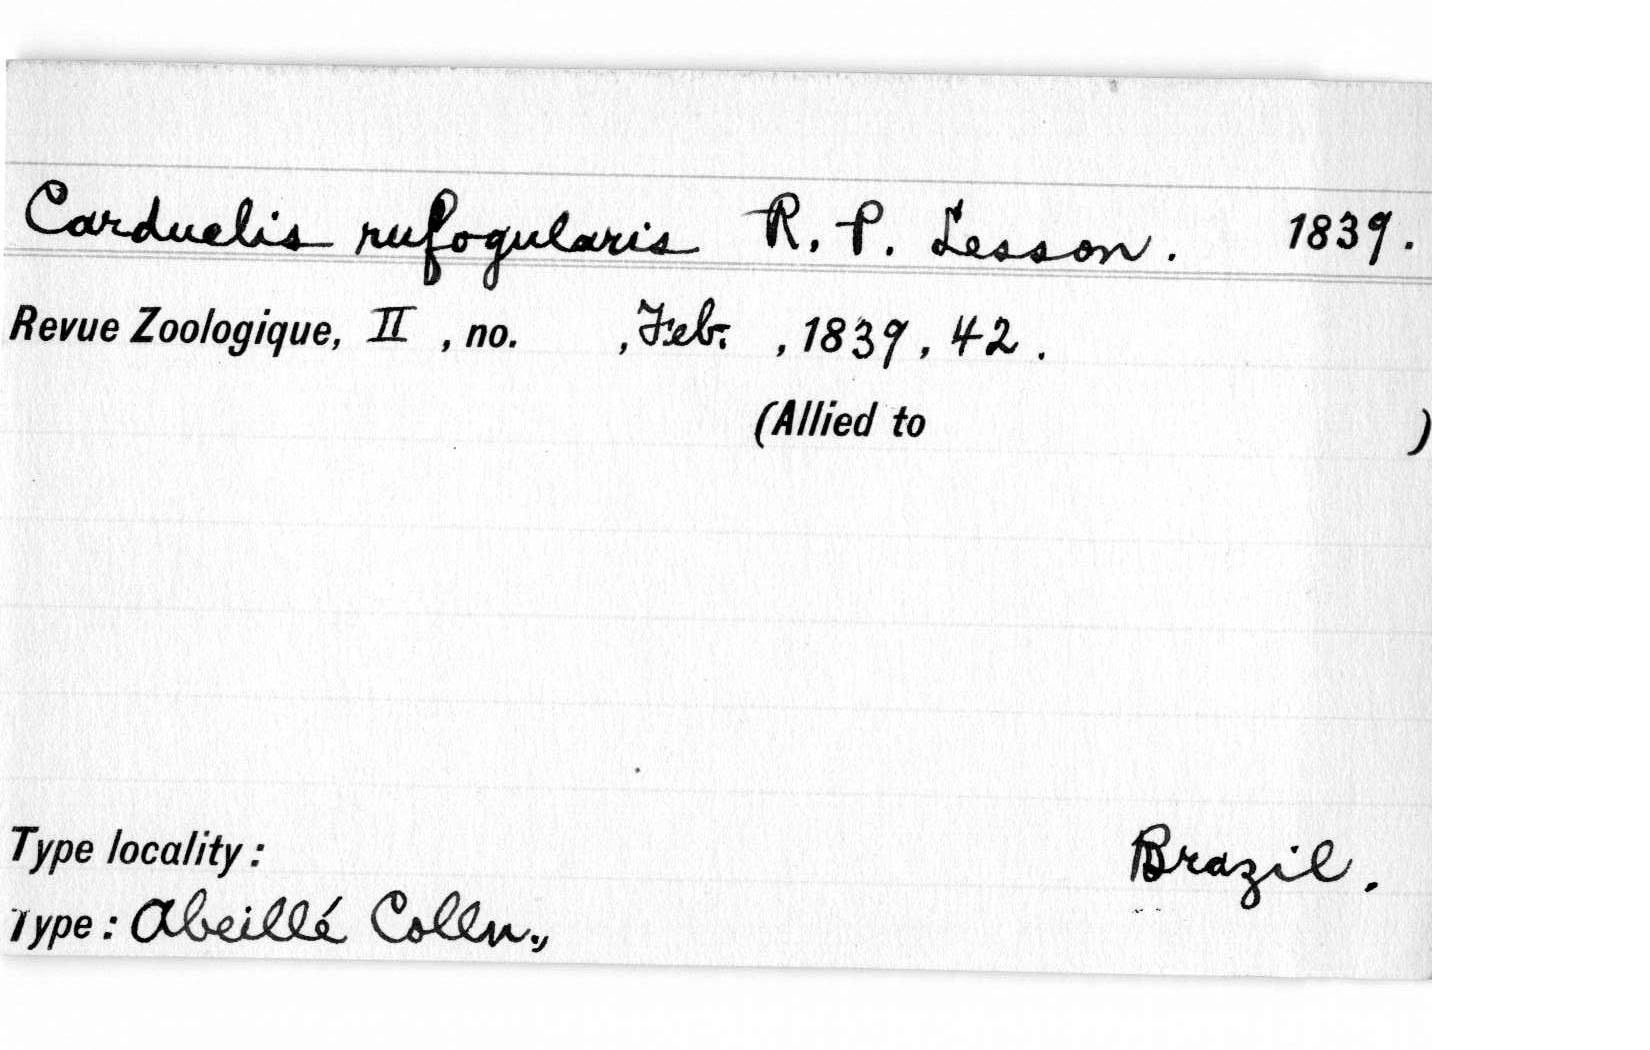 Carduelis rufogularis R. P. Lesson. 1839.
Revue Zoologique, II , no. , Feb. , 1839 , 42 .
(Allied to )
Type locality : Brazil.
Type : Abeillé Colln.,